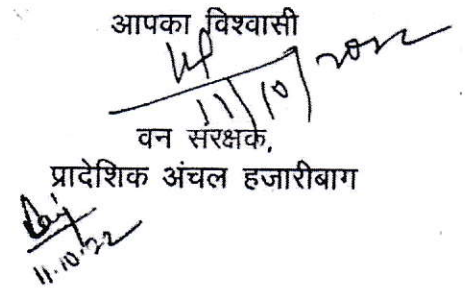 आपका विश्वासी
11/10/2022
वन संरक्षक,
प्रादेशिक अंचल हजारीबाग
11.10.22